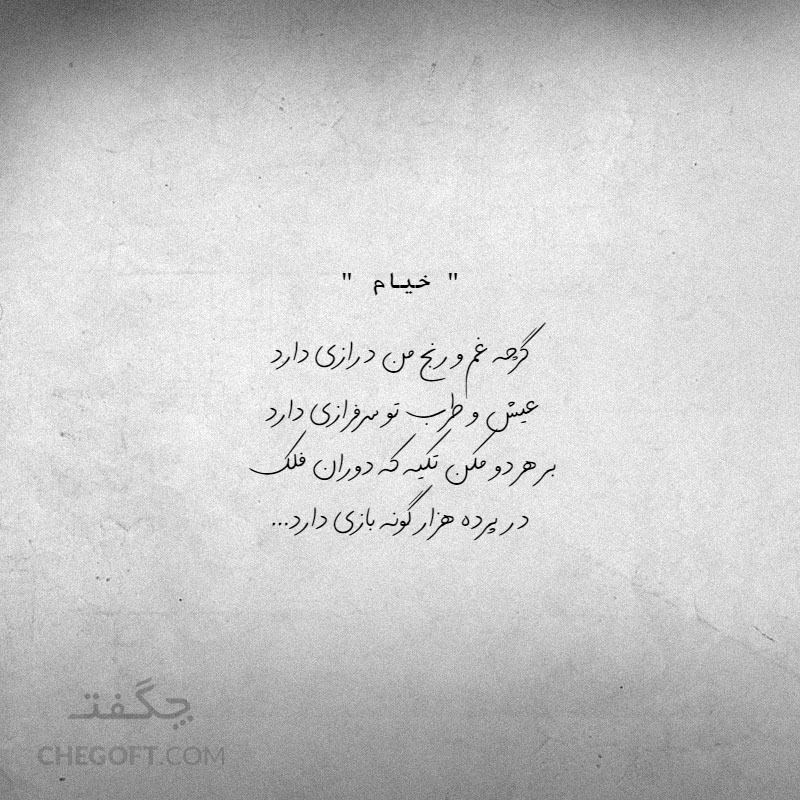 " خیام "
گرچه غم و رنج من درازی دارد
عیش و طرب تو سرفرازی دارد
بر هر دو مکن تکیه که دوران فلک
در پرده هزار گونه بازی دارد...
چگفت
CHEGOFT.COM